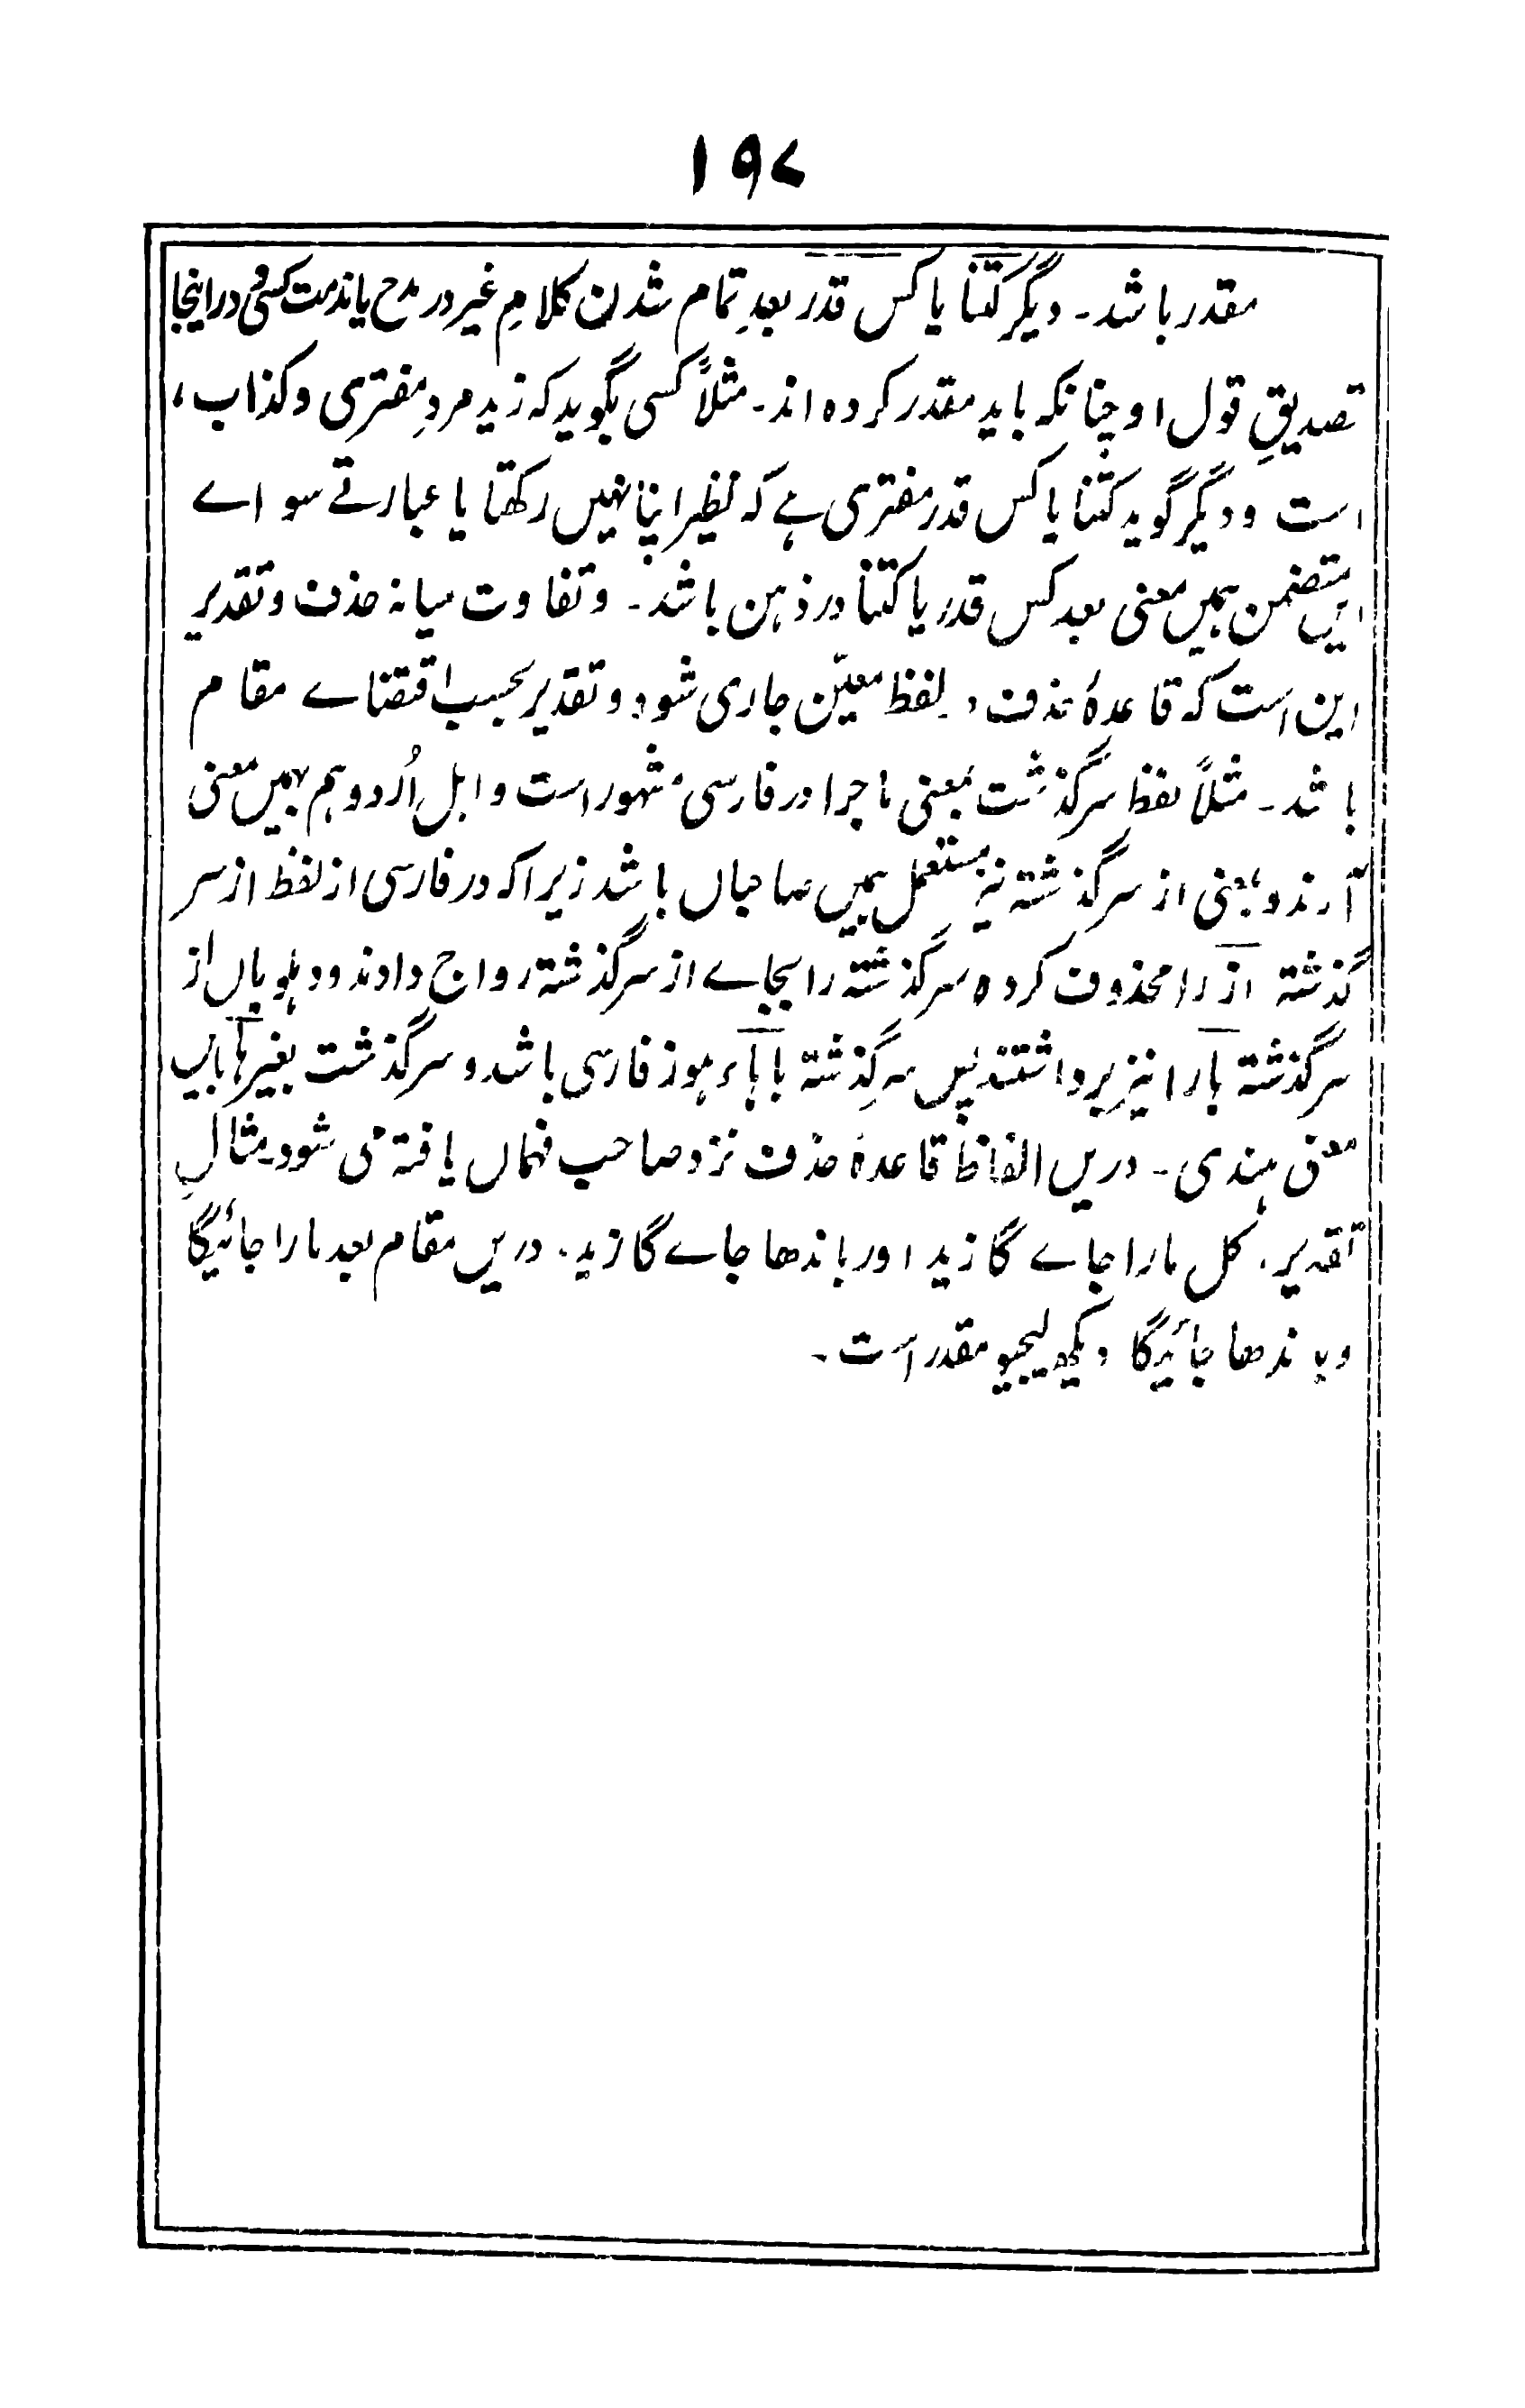 ۱۹۷
مقدر باشد۔ دیگر کتنا یا کس قدر بعدِ تمام شدن کلامِ غیر در مدح یا مذمت کسی و درینجا
تصدیقِ قول او چنانکہ باید مقدر کردہ اند۔ مثلاً کسی بگوید کہ زید مردِ مفتری و کذاب،
است و دیگر گوید کتنا یا کس قدر مفتری ہے کہ نظیر اپنا نہیں رکھتا یا عبارتے سواے
ایں متضمن ہمیں معنی بعد کس قدر یا کتنا در ذہن باشد۔ و تفاوت میانۂ حذف و تقدیر
این است کہ قاعدۂ حذف در لفظ معیّن جاری شود و تقدیر بحسب اقتضاے مقام
باشد۔ مثلاً لفظ سرگذشت بمعنی ماجرا در فارسی مشہور است و اہلِ اُردو ہم بہمیں معنی
آرند و بمعنی از سر گذشتہ نیز مستعمل ہمیں صاحباں باشد زیرا کہ در فارسی از لفظ از سر
گذشتہ از را محذوف کردہ سرگذشتہ را بجاے از سر گذشتہ رواج دادند و دہلویاں از
سرگذشتہ ہا را نیز برداشتند پس سرگذشتہ با ہاء ہوز فارسی باشد و سرگذشت بغیر ہا بایں
معنی ہندی۔ دریں الفاظ قاعدۂ حذف نزد صاحب فہماں یافتہ می شود۔ مثالِ
تقدیر۔ کل مارا جاے گا زید اور باندھا جاے گا زید۔ دریں مقام بعد مارا جائیگا
و باندھا جائیگا دیکھ لیجیو مقدر است۔